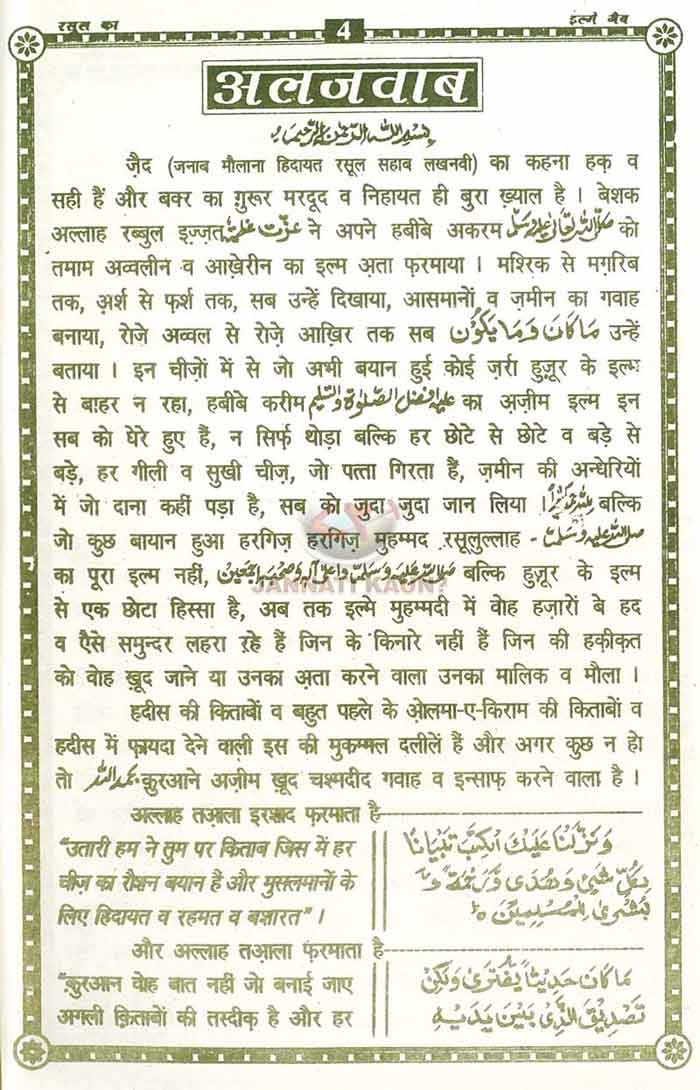 रसूल का 4 इल्मे गैब
अलजवाब
بسم اللہ الرحمٰن الرحیم
ज़ैद (जनाब मौलाना हिदायत रसूल सहाब लखनवी) का कहना हक़ व
सही हैं और बक्र का ग़ुरूर मरदूद व निहायत ही बुरा ख़्याल है । बेशक
अल्लाह रब्बुल इज़्ज़त ने अपने हबीबे अकरम صلی اللہ تعالیٰ علیہ وسلم को
तमाम अव्वलीन व आख़ेरीन का इल्म अता फ़रमाया । मश्रिक से मग़रिब
तक, अ़र्श से फ़र्श तक, सब उन्हें दिखाया, आसमानों व ज़मीन का गवाह
बनाया, रोज़े अव्वल से रोज़े आख़िर तक सब مَا كَانَ وَمَا يَكُوْن उन्हें
बताया । इन चीज़ों में से जो अभी बयान हुई कोई ज़र्रा हुज़ूर के इल्म
से बाहर न रहा, हबीबे करीम علیہ افضل الصلوٰۃ والتسلیم का अज़ीम इल्म इन
सब को घेरे हुए हैं, न सिर्फ़ थोड़ा बल्कि हर छोटे से छोटे व बड़े से
बड़े, हर गीली व सुखी चीज़, जो पत्ता गिरता हैं, ज़मीन की अन्धेरियों
में जो दाना कहीं पड़ा है, सब को जुदा जुदा जान लिया । बल्कि
जो कुछ बायान हुआ हरगिज़ हरगिज़ मुहम्मद रसूलुल्लाह - صلی اللہ علیہ وسلم
का पूरा इल्म नहीं, صلی اللہ علیہ وسلم وعلیٰ آلہ وصحبہ اجمعین बल्कि हुज़ूर के इल्म
JANNATI KAUN?
से एक छोटा हिस्सा है, अब तक इल्मे मुहम्मदी में वोह हज़ारों बे हद
व ऐसे समुन्दर लहरा रहे हैं जिन के किनारे नहीं हैं जिन की हक़ीक़त
को वोह ख़ूद जाने या उनका अ़ता करने वाला उनका मालिक व मौला ।
हदीस की किताबों व बहुत पहले के ओलमा-ए-किराम की किताबों व
हदीस में फायदा देने वाली इस की मुकम्मल दलीलें हैं और अगर कुछ न हो
तो بحمد اللہ क़ुरआने अज़ीम ख़ूद चश्मदीद गवाह व इन्साफ करने वाला है ।
अल्लाह तआ़ला इरशाद फ़रमाता है—
"उतारी हम ने तुम पर किताब जिस में हर
चीज़ का रौशन बयान हैं और मुसलमानों के
लिए हिदायत व रहमत व बशारत" ।
وَنَزَّلْنَا عَلَيْكَ الْكِتٰبَ تِبْيَانًا
لِكُلِّ شَيْءٍ وَهُدًى وَرَحْمَةً وَ
بُشْرٰى لِلْمُسْلِمِيْنَ ۝
और अल्लाह तआ़ला फ़रमाता है—
"क़ुरआन वोह बात नहीं जो बनाई जाए
अगली क़िताबों की तस्दीक़ है और हर
مَا كَانَ حَدِيْثًا يُّفْتَرٰى وَلٰكِنْ
تَصْدِيْقَ الَّذِىْ بَيْنَ يَدَيْهِ